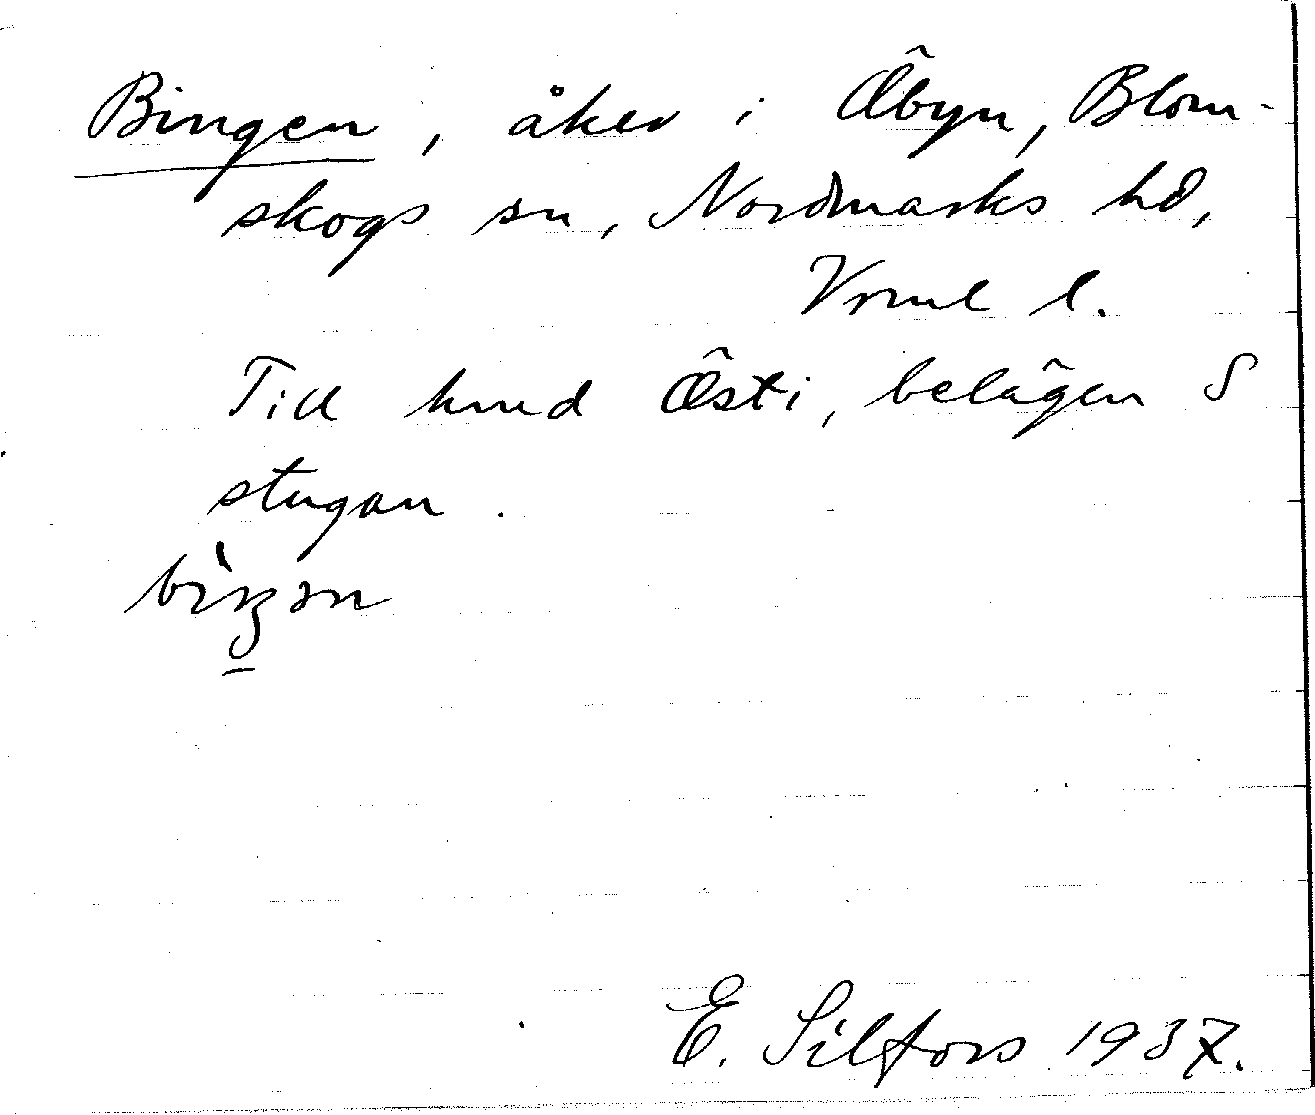 Bingen, åker i Öbyn, Blom-
skogs sn, Nordmarks hd,
Vrml l.
Till hmd Östi, belägen S
stugan.
E. Silfors 1937.